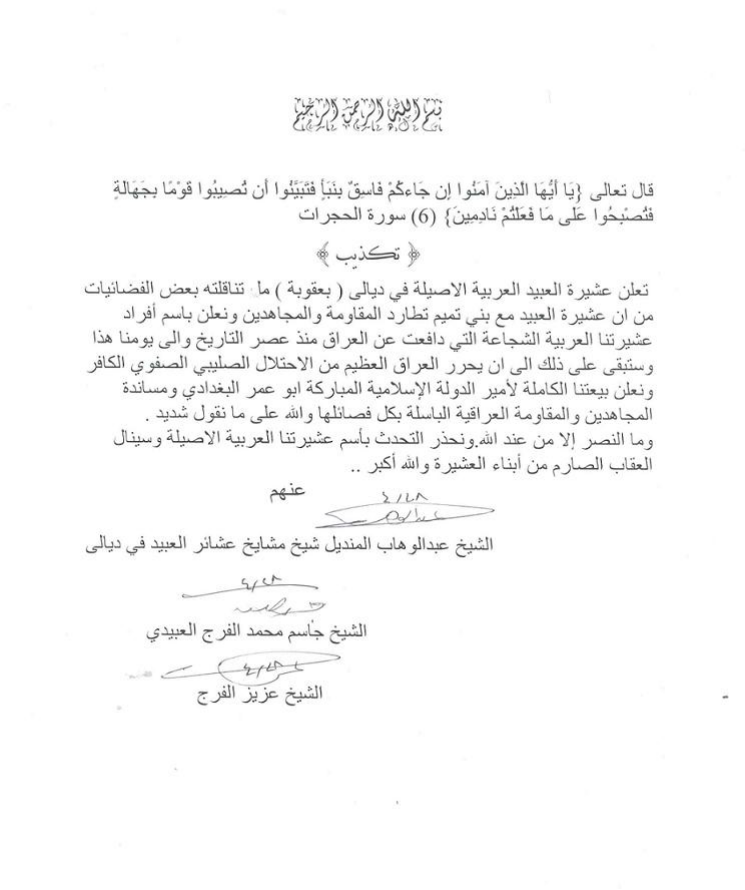 بسم الله الرحمن الرحيم
قال تعالى {يَا أَيُّهَا الَّذِينَ آمَنُوا إِن جَاءكُمْ فَاسِقٌ بِنَبَأٍ فَتَبَيَّنُوا أَن تُصِيبُوا قَوْمًا بِجَهَالَةٍ
فَتُصْبِحُوا عَلَى مَا فَعَلْتُمْ نَادِمِينَ} (6) سورة الحجرات
﴿ تكذيب ﴾
تعلن عشيرة العبيد العربية الاصيلة في ديالى ( بعقوبة ) ما تناقلته بعض الفضائيات
من ان عشيرة العبيد مع بني تميم تطارد المقاومة والمجاهدين ونعلن باسم أفراد
عشيرتنا العربية الشجاعة التي دافعت عن العراق منذ عصر التاريخ والى يومنا هذا
وستبقى على ذلك الى ان يحرر العراق العظيم من الاحتلال الصليبي الصفوي الكافر
ونعلن بيعتنا الكاملة لأمير الدولة الإسلامية المباركة ابو عمر البغدادي ومساندة
المجاهدين والمقاومة العراقية الباسلة بكل فصائلها والله على ما نقول شديد .
وما النصر إلا من عند الله.ونحذر التحدث بأسم عشيرتنا العربية الاصيلة وسينال
العقاب الصارم من أبناء العشيرة والله أكبر ..
عنهم
٤/٢٨
الشيخ عبدالوهاب المنديل شيخ مشايخ عشائر العبيد في ديالى
٤/٢٨
الشيخ جاسم محمد الفرج العبيدي
٤/٢٨
الشيخ عزيز الفرج